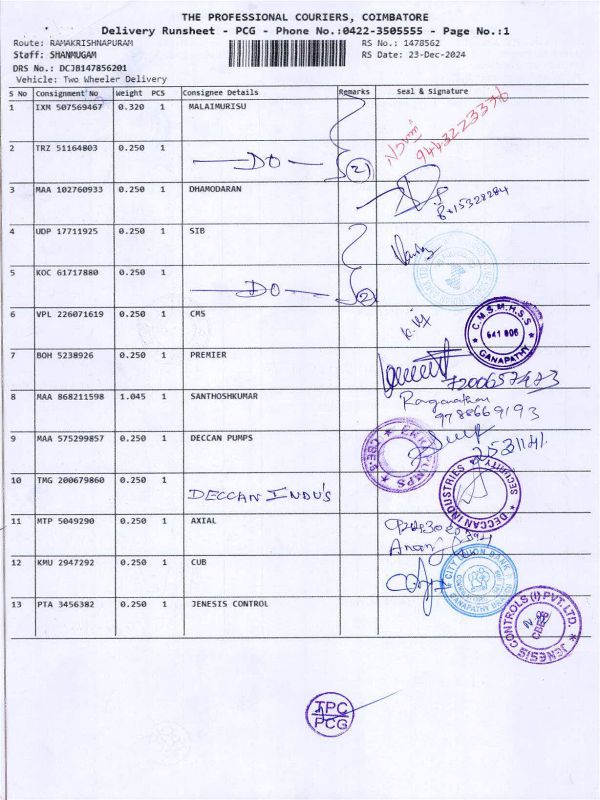 THE PROFESSIONAL COURIERS, COIMBATORE
Delivery Runsheet - PCG - Phone No.:0422-3505555 - Page No.:1
Route: RAMAKRISHNAPURAM RS No.: 1478562
Staff: SHANMUGAM RS Date: 23-Dec-2024
DRS No.: DCJB147856201
Vehicle: Two Wheeler Delivery
S No Consignment No Weight PCS Consignee Details Remarks Seal & Signature
1 IXM 507569467 0.320 1 MALAIMURISU
9443223376
2 TRZ 51164803 0.250 1 DO (2)
3 MAA 102760933 0.250 1 DHAMODARAN
4 UDP 17711925 0.250 1 SIB
5 KOC 61717880 0.250 1 DO (2)
6 VPL 226071619 0.250 1 CMS
C.M.S.M.H.S.S
641 006
GANAPATHY
7 BOH 5238926 0.250 1 PREMIER
8 MAA 868211598 1.045 1 SANTHOSHKUMAR
Ragunathan
9788669193
9 MAA 575299857 0.250 1 DECCAN PUMPS
2531141
10 TMG 200679860 0.250 1 DECCAN INDU'S
SECURITY
DECCAN INDUSTRIES
11 MTP 5049290 0.250 1 AXIAL
12 KMU 2947292 0.250 1 CUB
CITY UNION BANK
13 PTA 3456382 0.250 1 JENESIS CONTROL
JENESIS CONTROLS (I) PVT. LTD.
TPC
PCG